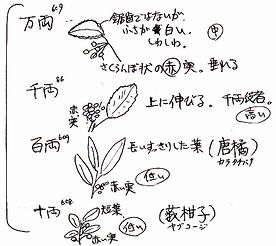 万両
鋸歯ではないが、
ふちが白い。
しわしわ。
中
さくらんぼ状の赤実。垂れる
千両
赤
実
上に伸びる。千両役者。
高い
百両
長いすっきりした葉（唐橘）
カラタチバナ
赤い実
低い
十両
短葉
低い
（藪柑子）
ヤブコージ
赤い実